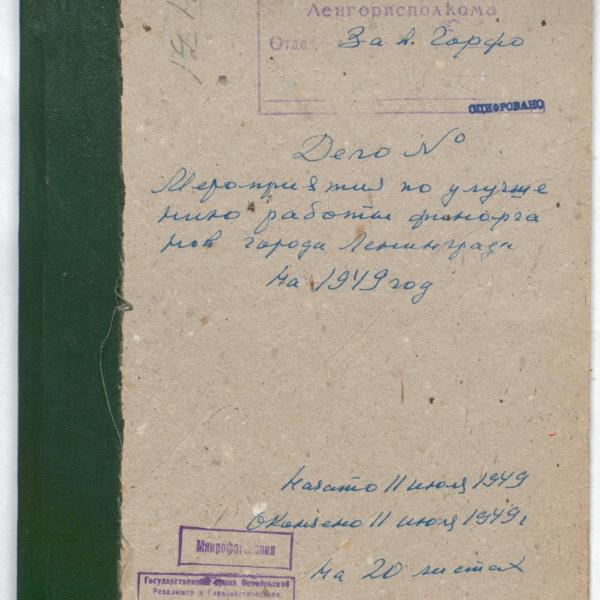 Ленгорисполкома
Отде Зав. Горфо
ОЦИФРОВАНО
Дело №
Мероприятия по улучше
нию работы финорга
нов города Ленинграда
на 1949 год
Начато 11 июля 1949
Окончено 11 июля 1949г
На 20 листах
Микрофотокопия
Государственный архив Октябрьской
Революции и Социалистического